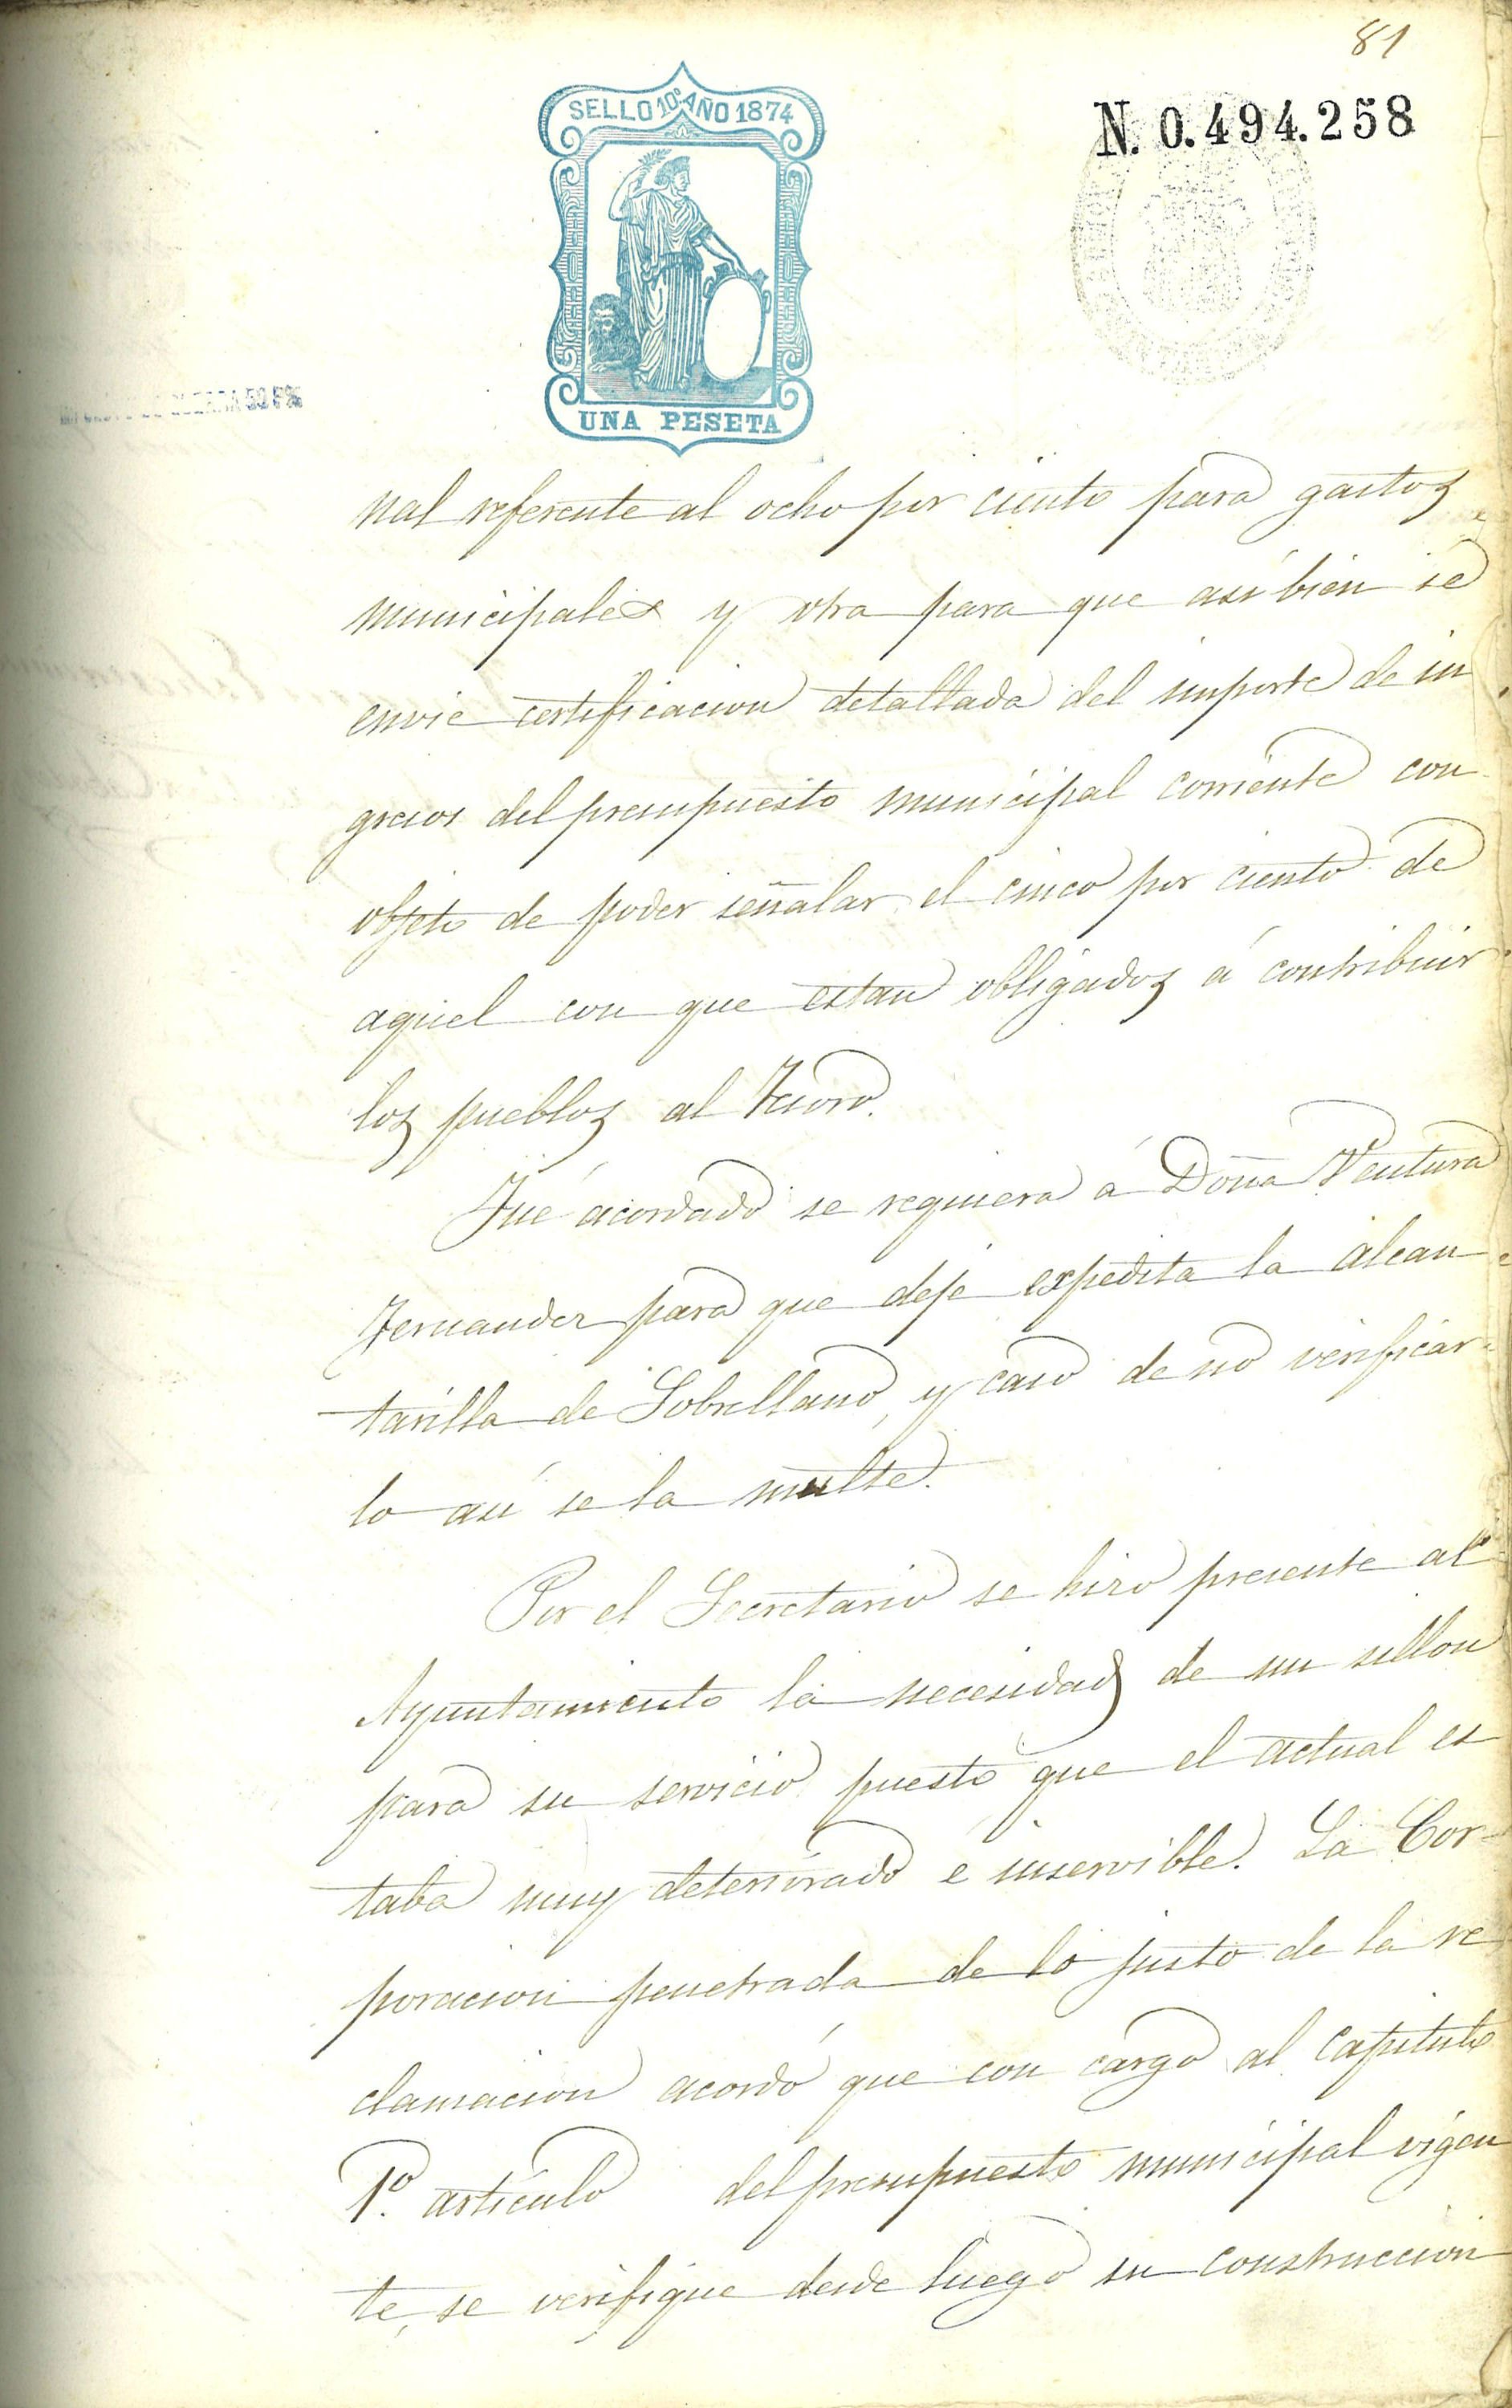 81
SELLO 10º AÑO 1874
N. 0.494.258
UNA PESETA
nal referente al ocho por ciento para gastos
municipales y otra para que asi bien se
envie certificacion detallada del importe de in
gresos del presupuesto municipal corriente con
objeto de poder señalar el cinco por ciento de
aquel con que estan obligados á contribuir
los pueblos al Tesoro.
Fué acordado se requiera á Doña Ventura
Fernandez para que deje expedita la alcan-
tarilla de Sobrellano, y caso de no verificar-
lo así se la multe.
Por el Secretario se hizo presente al
Ayuntamiento la necesidad de un sillon
para su servicio puesto que el actual es
taba muy deteriorado é inservible. La Cor-
poracion penetrada de lo justo de la re
clamacion acordó que con cargo al Capitulo
1º. artículo del presupuesto municipal vigen
te, se verifique desde luego su construccion